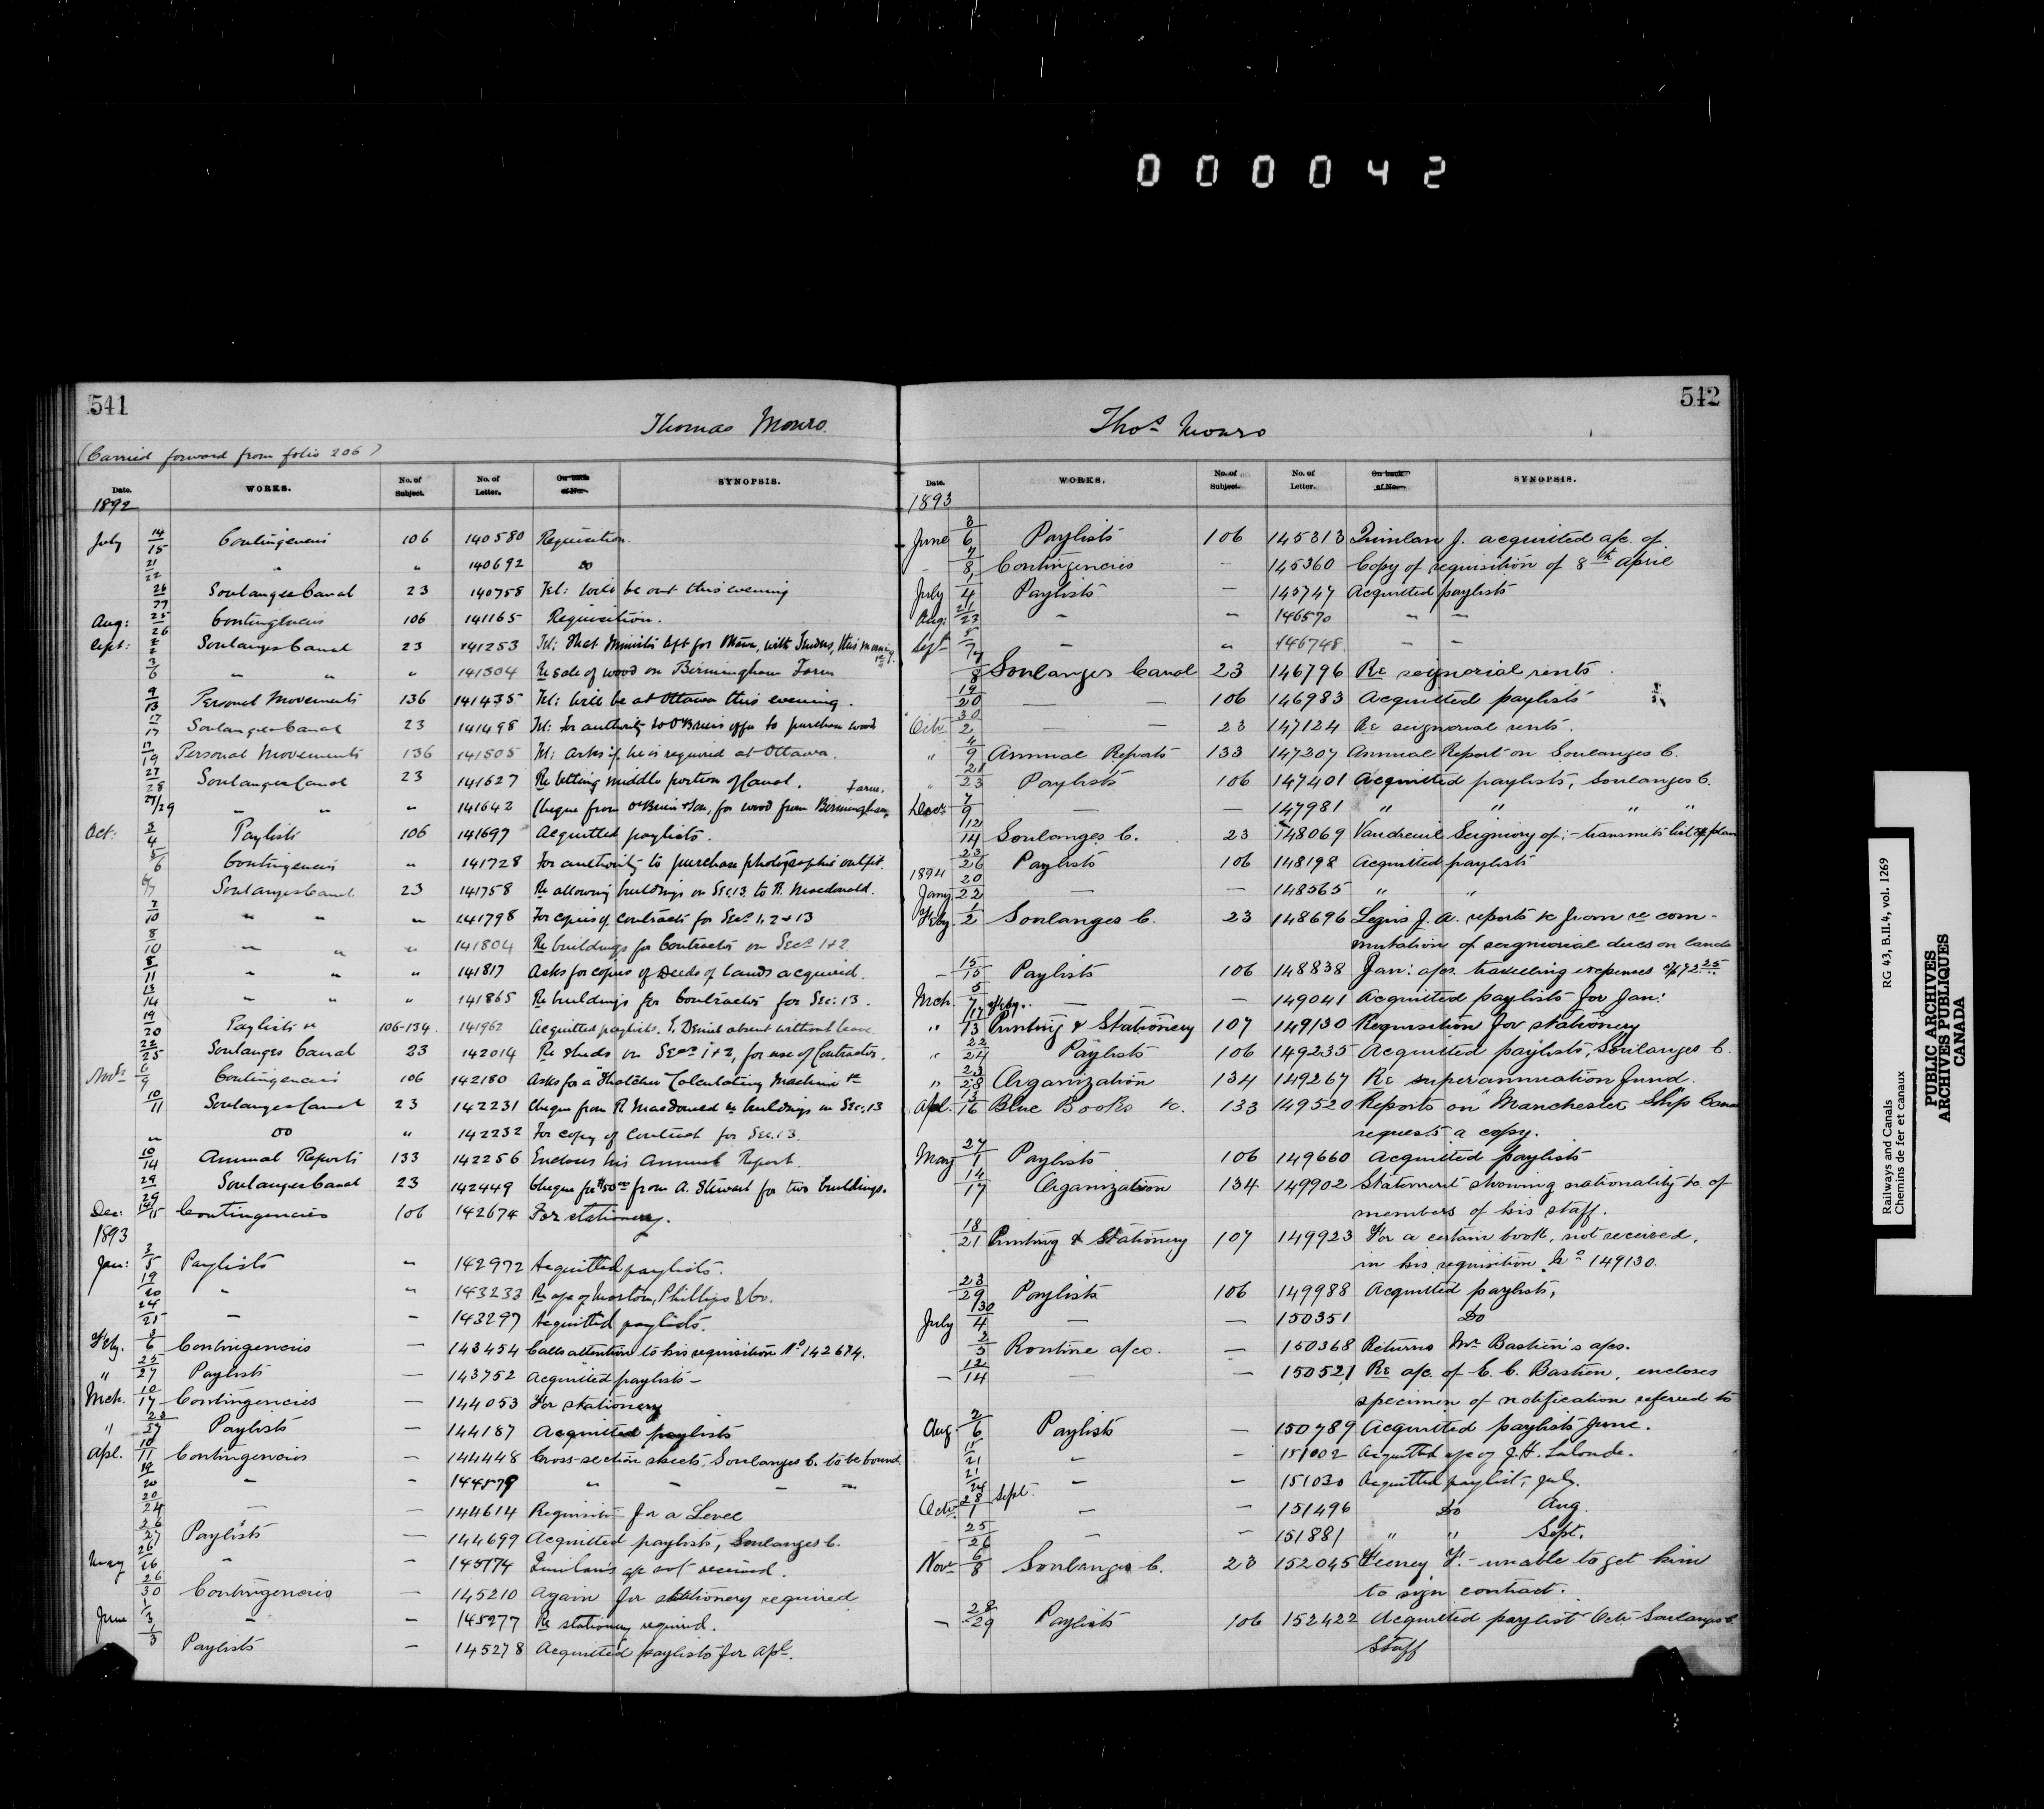 000042
541
Thomas Monro
(Carried forward from folio 206)
Date. WORKS. No. of Subject. No. of Letter. On back of No. SYNOPSIS.
1892
July 14/15 Contingencies 106 140580 Requisition.
21/22 " " 140692 do
26/27 Soulanges Canal 23 140758 Tel: will be out this evening
Aug: 25/26 Contingencies 106 141165 Requisition.
Sept: 2/2 Soulanges Canal 23 141253 Tel: That Minister left for Ottawa, with this morning.
3/6 " " " 141304 Re sale of wood on Birmingham Farm
9/13 Personal Movements 136 141435 Tel: Will be at Ottawa this evening.
17/17 Soulanges Canal 23 141498 Tel: For authority to O'Brien's offer to purchase wood
17/19 Personal Movements 136 141505 Tel: Asks if he is required at Ottawa.
27/28 Soulanges Canal 23 141627 Re letting middle portion of Canal.
27/29 " " " 141642 Cheque from O'Brien & Son, for wood from Birmingham Farm.
Oct: 3/4 Paylists 106 141697 Acquitted paylists.
5/6 Contingencies " 141728 For authority to purchase photographic outfit.
6/7 Soulanges Canal 23 141758 Re allowing buildings on Sec 13 to R. Macdonald.
7/10 " " " 141798 For copies of contracts for Secs 1, 2 & 13
8/10 " " " 141804 Re buildings for Contractor on Secs 1 & 2
8/11 " " " 141817 Asks for copies of Deeds of lands acquired.
13/14 " " " 141865 Re buildings for Contractor for Sec: 13.
19/20 Paylists 106-134 141962 Acquitted paylists. E. Denis absent without leave
22/25 Soulanges Canal 23 142014 Re sheds on Secs 1 & 2, for use of Contractor.
Novr 6/9 Contingencies 106 142180 Asks for a "Thatcher" Calculating Machine
10/11 Soulanges Canal 23 142231 Cheque from R Macdonald re buildings on Sec. 13
" do " 142232 For copy of contract for Sec. 13.
10/14 Annual Reports 133 142256 Encloses his Annual Report.
29/29 Soulanges Canal 23 142449 Cheque for $50 00 from A. Stewart for two buildings.
Dec: 14/15 Contingencies 106 142674 For stationery.
1893
Jan: 3/5 Paylists " 142972 Acquitted paylists.
19/20 " " 143233 Re a/c of Morton, Phillips & Co.
24/25 — — 143297 Acquitted paylists.
Feby. 3/6 Contingencies — 143454 Calls attention to his requisition No 142674.
" 25/27 Paylists — 143752 Acquitted paylists —
Mch. 10/17 Contingencies — 144053 For stationery
" 23/27 Paylists — 144187 Acquitted paylists
Apl. 10/11 Contingencies — 144448 Cross-section sheets, Soulanges C. to be bound
19/20 — — 144579 " - - "
20/24 — — 144614 Requisition for a Level
26/27 Paylists — 144699 Acquitted paylists, Soulanges C.
May 26/26 — — 145174 Quinlan's a/c not received.
26/30 Contingencies — 145210 Again for stationery required
June 1/3 " — 145277 Re stationery required.
1/3 Paylists — 145278 Acquitted paylists for Apl.
542
Thos Monro
Date. WORKS. No. of Subject. No. of Letter. On back of No. SYNOPSIS.
1893
June 3/6 Paylists 106 145313 Quinlan J. acquitted a/c. of
7/8 Contingencies — 145360 Copy of requisition of 8th April
July 1/4 Paylists — 145747 Acquitted paylists
Aug: 21/23 — — 146570 — —
Sept 5/7 — " 146748 — —
7/8 Soulanges Canal 23 146796 Re seignorial rents.
19/20 — — 106 146983 Acquitted paylists
Octr 30/2 — 23 147124 Re seignorial rents.
" 4/9 Annual Reports 133 147307 Annual Report on Soulanges C.
21/23 Paylists 106 147401 Acquitted paylists, Soulanges C.
Decr 7/9 — — 147981 " " " "
12/14 Soulanges C. 23 148069 Vaudreuil Seigniory of:- transmits list of plan
23/26 Paylists 106 148198 Acquitted paylists
1894
Jany 20/22 — — 148565 " "
Feby 1/2 Soulanges C. 23 148696 Legris J. A. reports &c from re com-
mutation of seigniorial dues on lands
15/15 Paylists 106 148838 Jan: a/cs. travelling expenses $72.25
Mch. 5/7 — — 149041 Acquitted paylists for Jan:
" 17 Feby. /13 Printing & Stationery 107 149130 Requisition for stationery
" 22/24 Paylists 106 149235 Acquitted paylists, Soulanges C.
" 23/28 Organization 134 149267 Re superannuation fund.
Apl. 13/16 Blue Books &c. 133 149520 Reports on "Manchester Ship Canal
requests a copy.
May 27/1 Paylists 106 149660 Acquitted paylists
14/17 Organization 134 149902 Statement showing nationality &c. of
members of his staff.
18/21 Printing & Stationery 107 149923 For a certain book, not received,
in his requisition No 149130.
23/29 Paylists 106 149988 Acquitted paylists,
July 30/4 — — 150351 Do
2/5 Routine a/cs. — 150368 Returns Mr. Bastien's a/cs.
— 12/14 — — 150521 Re a/c. of E. C. Bastien, encloses
specimen of notification referred to
Aug 2/6 Paylists — 150789 Acquitted paylists June.
15/21 " — 151002 Acquitted a/c of J. H. Lalonde.
21/24 — — 151030 Acquitted paylist, July.
Octr 28 Sept./1 — — 151496 Do Aug.
25/26 — — 151881 " " Sept.
Novr 6/8 Soulanges C. 23 152045 Feeney F. - unable to get him
to sign contract.
— 28/29 Paylists 106 152422 Acquitted paylist Octr Soulanges C.
Staff
Railways and Canals
Chemins de fer et canaux
RG 43, B.II.4, vol. 1269
PUBLIC ARCHIVES
ARCHIVES PUBLIQUES
CANADA